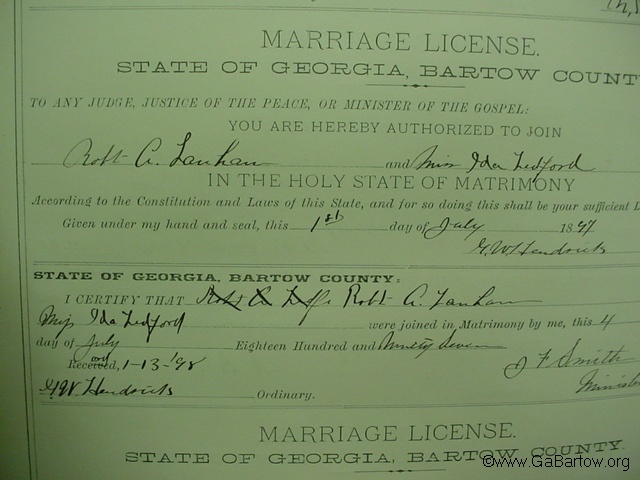 MARRIAGE LICENSE.
STATE OF GEORGIA, BARTOW COUNT
TO ANY JUDGE, JUSTICE OF THE PEACE, OR MINISTER OF THE GOSPEL:
YOU ARE HEREBY AUTHORIZED TO JOIN
Robt A. Lanham and Miss Ida Ledford
IN THE HOLY STATE OF MATRIMONY
According to the Constitution and Laws of this State, and for so doing this shall be your sufficient L
Given under my hand and seal, this 1st day of July 1897
G.W. Hendricks
STATE OF GEORGIA, BARTOW COUNTY:
I CERTIFY THAT Robt A Robt A. Lanham
Miss Ida Ledford were joined in Matrimony by me, this 4
day of July Eighteen Hundred and Ninety Seven
Received, 1-13-'98 J F Smith
G.W. Hendricks Ordinary. Minister
MARRIAGE LICENSE.
STATE OF GEORGIA, BARTOW COUNTY.
©www.GaBartow.org